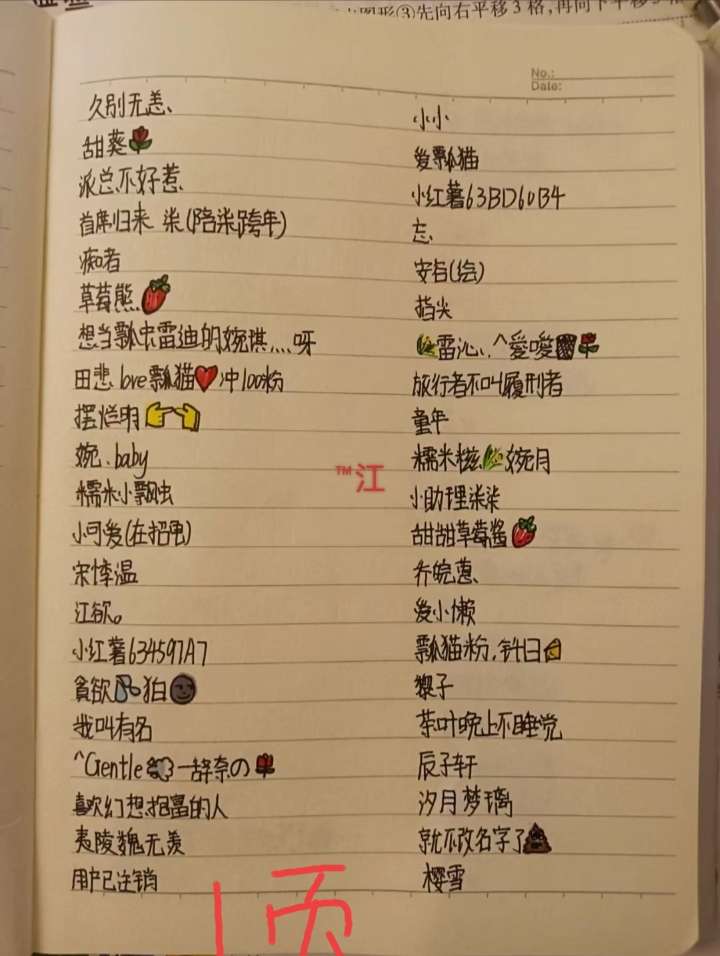 图形③先向右平移3格,再向下平移5格
No.:
Date:
久别无恙、
甜葵🌹
派总不好惹、
首席归来 柒(陪柒跨年)
痴者
草莓熊、🍓
想当瓢虫雷迪的婉琪灬呀
田悲、love瓢猫❤️冲100粉
摆烂明👉👈
婉、baby
糯米小瓢虫
小可爱(在招电)
宋悸温
江欲。
小红薯634597A7
貪欲💦狛🌚
我叫有名
^Gentle💨一辞奈の🌹
喜欢幻想抱富的人
夷陵魏无羡
用户已注销
小小
爱瓢猫
小红薯63BD60B4
忘、
安旨(绘)
指尖
🌿雷沁、^愛嗳🌹
旅行者不叫履刑者
童年
糯米糍、🌿婉月
小助理柒柒
甜甜草莓酱🍓
乔皖蒽、
爱小懒
瓢猫粉,钭日🧀
子
茶叶晚上不睡觉
辰子轩
汐月梦璃
就不改名字了💩
樱雪
™江
1页